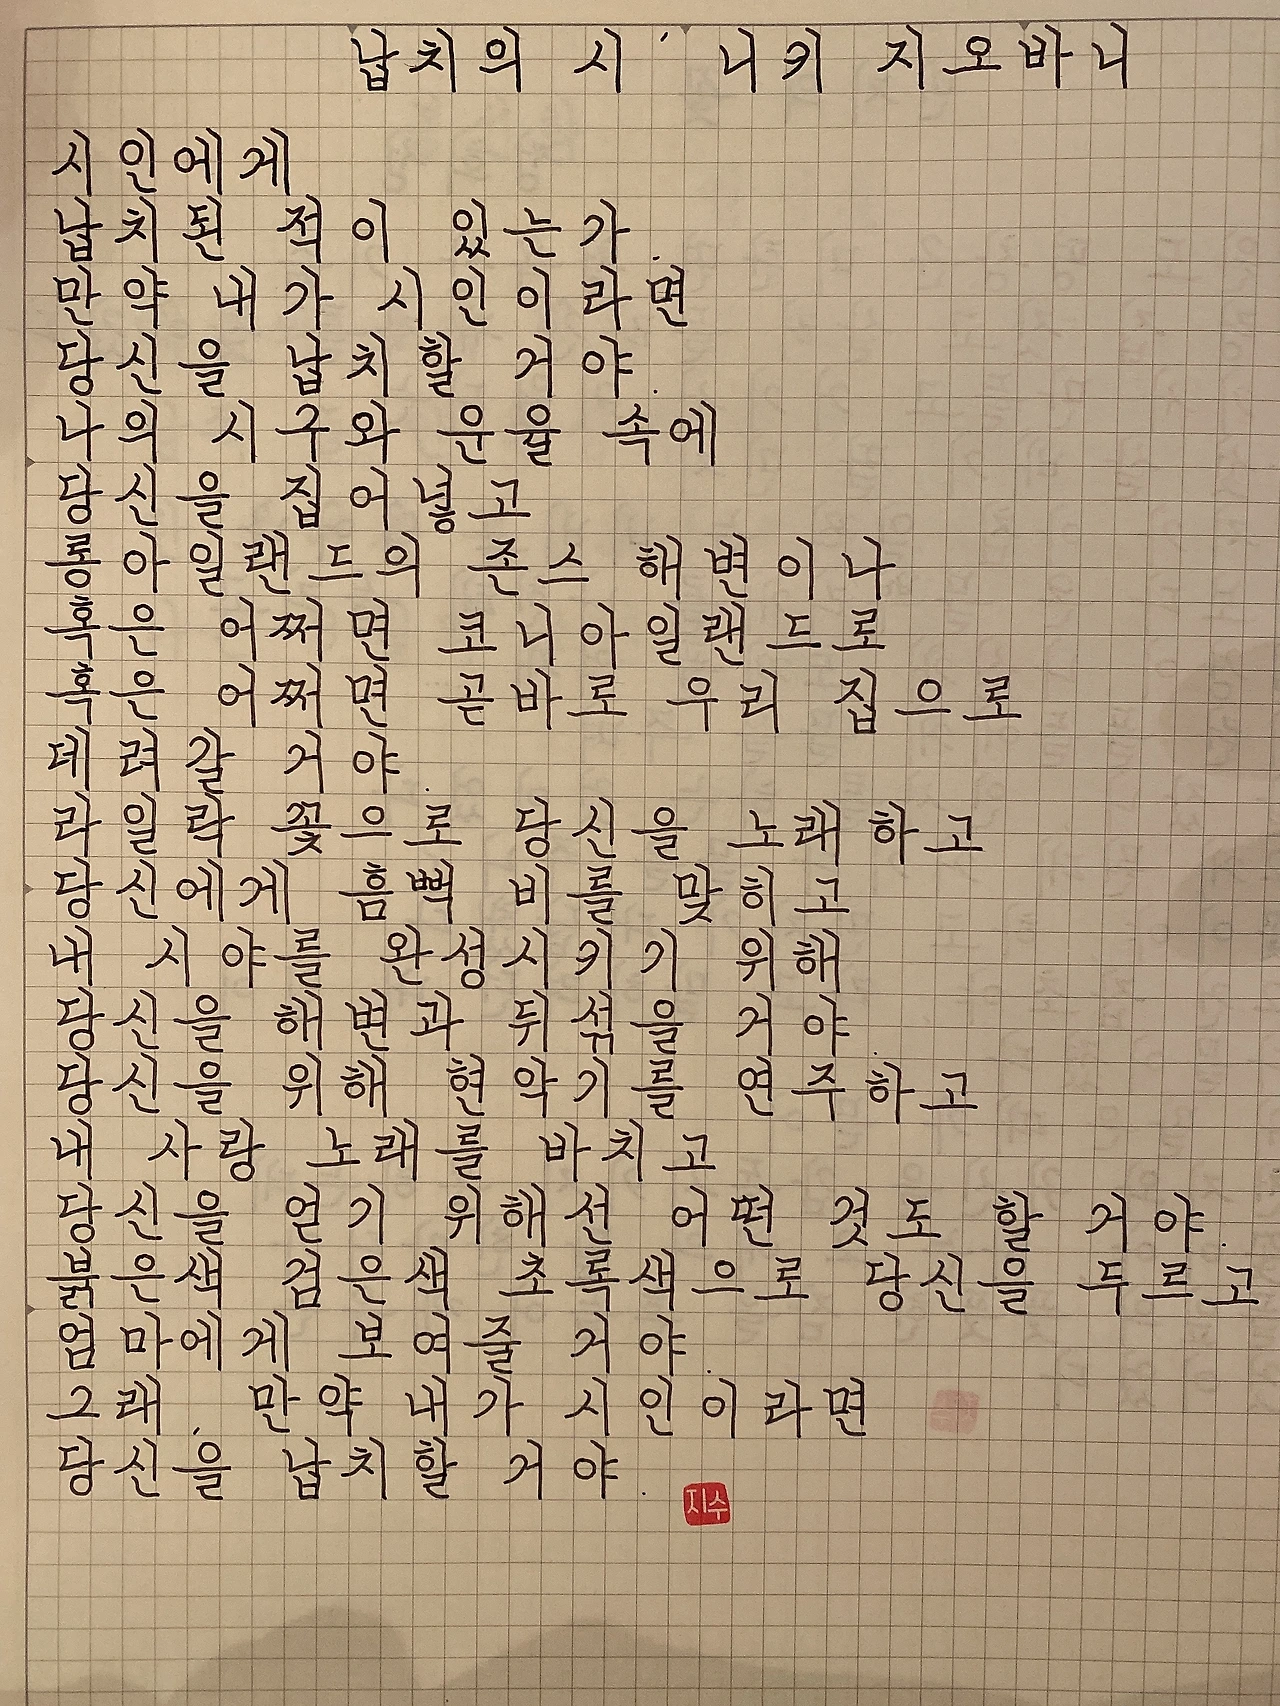 납치의 시 ' 니키 지오바니
시인에게
납치된 적이 있는가.
만약 내가 시인이라면
당신을 납치할 거야.
나의 시구와 운율 속에
당신을 집어넣고
롱아일랜드의 존스 해변이나
혹은 어쩌면 코니아일랜드로
혹은 어쩌면 곧바로 우리 집으로
데려갈 거야.
라일락 꽃으로 당신을 노래하고
당신에게 흠뻑 비를 맞히고
내 시야를 완성시키기 위해
당신을 해변과 뒤섞을 거야.
당신을 위해 현악기를 연주하고
내 사랑 노래를 바치고
당신을 얻기 위해선 어떤 것도 할 거야.
붉은색 검은색 초록색으로 당신을 두르고
엄마에게 보여줄 거야.
그래, 만약 내가 시인이라면
당신을 납치할 거야.
지수